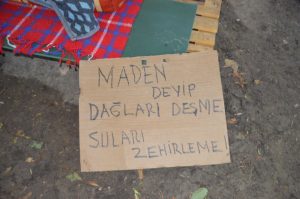 MADEN
DEYİP
DAĞLARI DEŞME
SULARI
ZEHİRLEME!